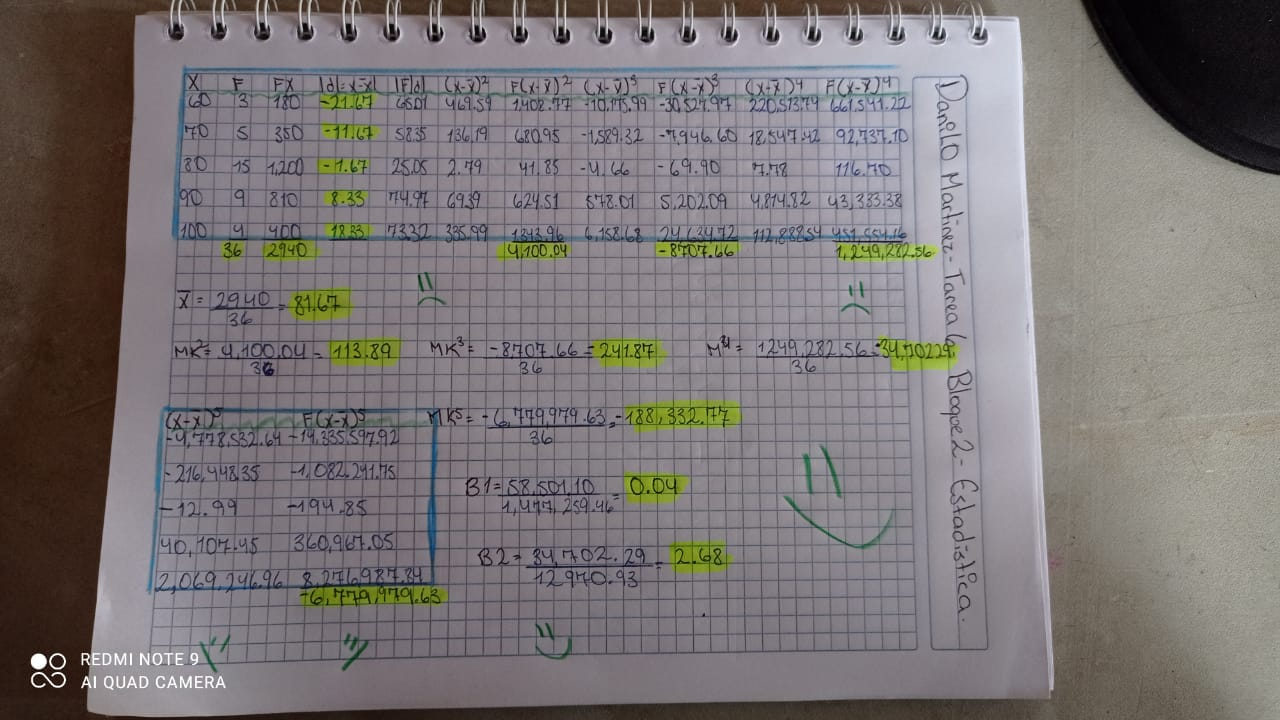 X F FX |d|=x-x̄| |F|d| (x-x̄)² F(x-x̄)² (x-x̄)³ F(x-x̄)³ (x-x̄)⁴ F(x-x̄)⁴
60 3 180 -21.67 6501 469.59 1,408.77 -10,175.99 -30,527.97 220,513.74 661,541.22
70 5 350 -11.67 5835 136.19 680.95 -1,589.32 -7,946.60 18,547.42 92,737.10
80 15 1,200 -1.67 25.05 2.79 41.85 -4.66 -69.90 7.78 116.70
90 9 810 8.33 74.97 6939 624.51 578.01 5,202.09 4,814.82 43,333.38
100 4 400 18.33 73.32 335.99 1343.96 6,158.68 24,634.72 112,888.54 451,554.16
36 2940 4,100.04 -8707.66 1,249,282.56
X̄ = 2940 = 81.67
36
MK²= 4,100.04 = 113.89 MK³= -8707.66 = 241.87 M⁴= 1249,282.56 = 34,70229
36 36 36
(x-x̄)⁵ F(x-x̄)⁵ MK5= -6,779,979.63 = -188,332.77
36
-4,778,532.64 -14,335,597.92
-216,448.35 -1,082,241.75
-12.99 -194.85
40,107.45 360,967.05
2,069,246.96 8,276,987.84
-6,779,979.63
B1= 58,501.10 = 0.04
1,477,259.46
B2= 34,702.29 = 2.68
12970.93
Danilo Martinez-Tarea 6 Bloque 2-Estadistica.
REDMI NOTE 9
AI QUAD CAMERA